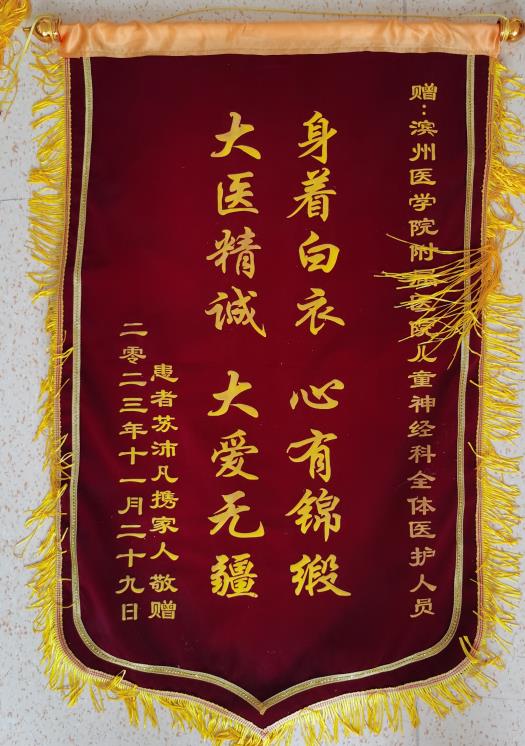 赠：滨州医学院附属医院儿童神经科全体医护人员
身着白衣 心有锦缎
大医精诚 大爱无疆
患者苏沛凡携家人 敬赠
二零二三年十一月二十九日